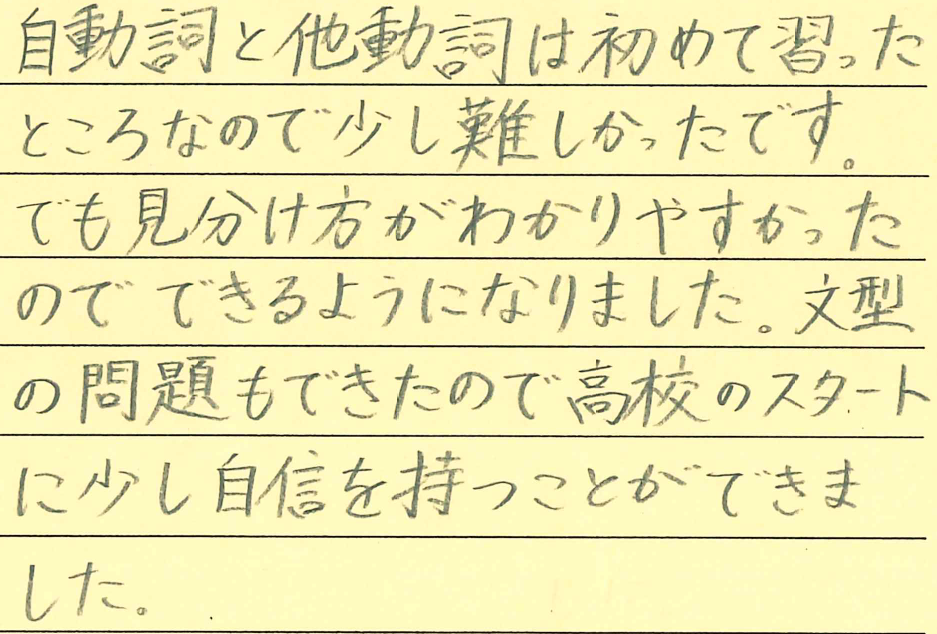 自動詞と他動詞は初めて習った
ところなので少し難しかったです。
でも見分け方がわかりやすかった
のでできるようになりました。文型
の問題もできたので高校のスタート
に少し自信を持つことができま
した。